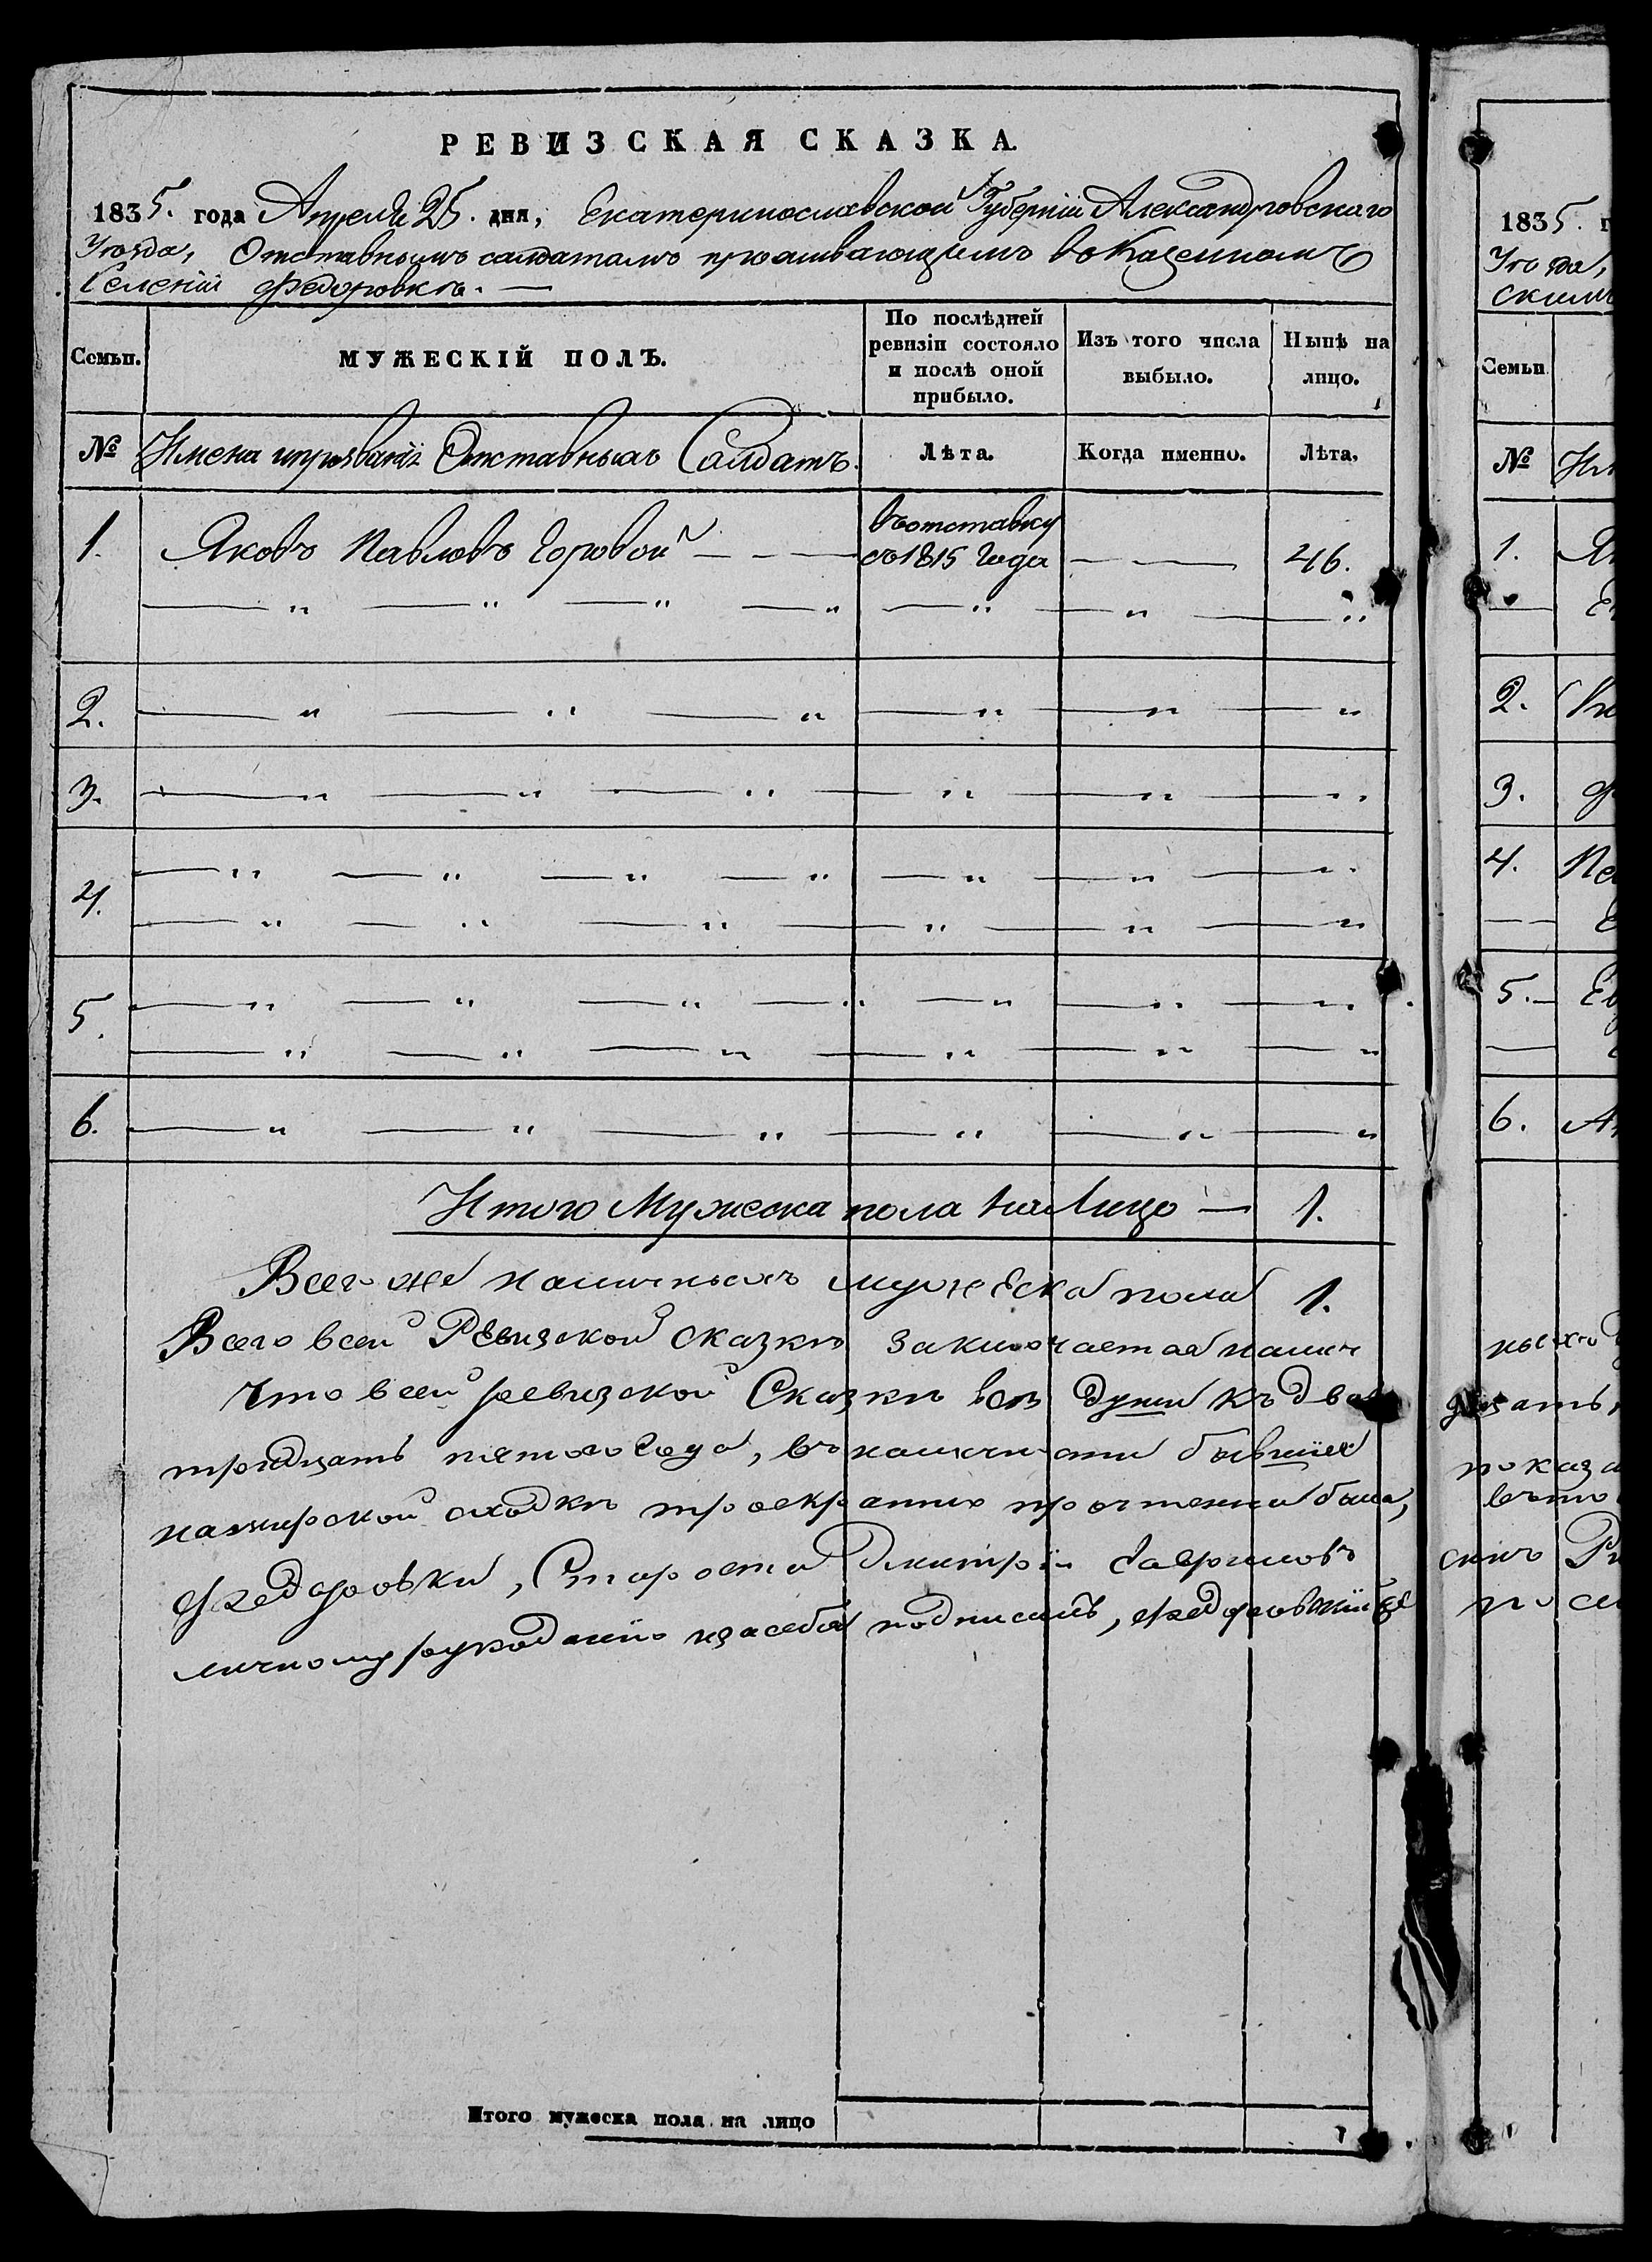 РЕВИЗСКАЯ СКАЗКА.
1835. года Апреля 25. дня, Екатеринославской Губерніи Александровского
Уѣзда, Отставнымъ салдатамъ проживающимъ въ Казенномъ
Селеніи Федоровкѣ. —
Семьи. МУЖЕСКІЙ ПОЛЪ. По послѣдней ревизіи состояло и послѣ оной прибыло. Изъ того числа выбыло. Нынѣ на лицо.
№ Имена ипрозваніи Отставныхъ Салдатъ. Лѣта. Когда именно. Лѣта.
1. Яковъ Павловъ Горовой — — — въотставку
съ1815 Года — — 46.
— " — " — " — " — " — " — "
2. — " — " — " — " — " — "
3. — " — " — " — " — " — "
4. — " — " — " — " — " — " — "
— " — " — " — " — " — "
5. — " — " — " — " — " — " — "
— " — " — " — " — " — "
6. — " — " — " — " — " — "
Итого Мужеска пола на Лицо — 1.
Всего же наличныхъ мужеска пола 1.
Всего всей Ревизской сказкѣ заключается налич
Что всей ревизской Сказкѣ всѣ души къ два
тридцать пятого Года, въ наличности бывшія
намирской сходкѣ троекратно прочтенна была,
Федоровки, Староста Дмитрій Гавриловъ
личному рукоданію изасебя подписалъ, Федоровскій
Итого мужеска пола на лицо
1835. г
Уѣзда,
скимъ
Семьи
№ Им
1. Як
—
2.
3.
4.
—
5. —
—
6.
ныхъ
показа